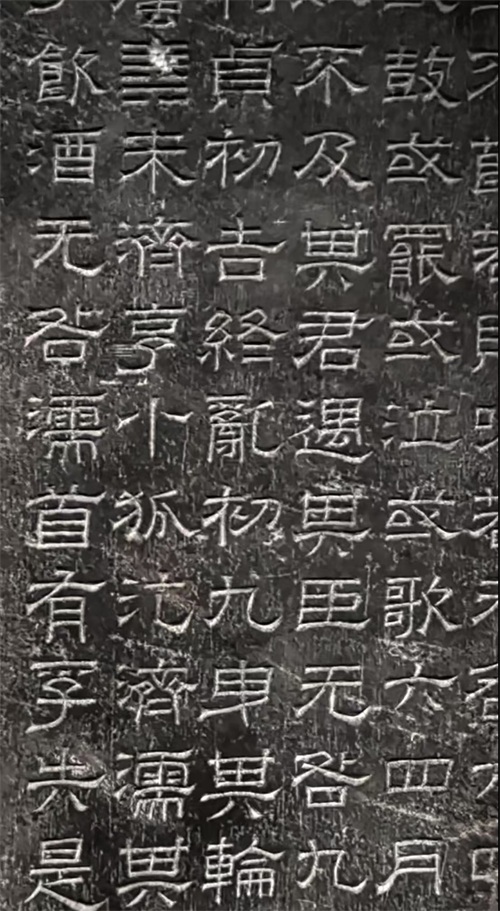 鼓或罷或泣或歌六四月
不及其君遇其臣无咎九
貞初吉終亂初九曳其輪
䷿未濟亨小狐汔濟濡其
飲酒无咎濡首有孚失是